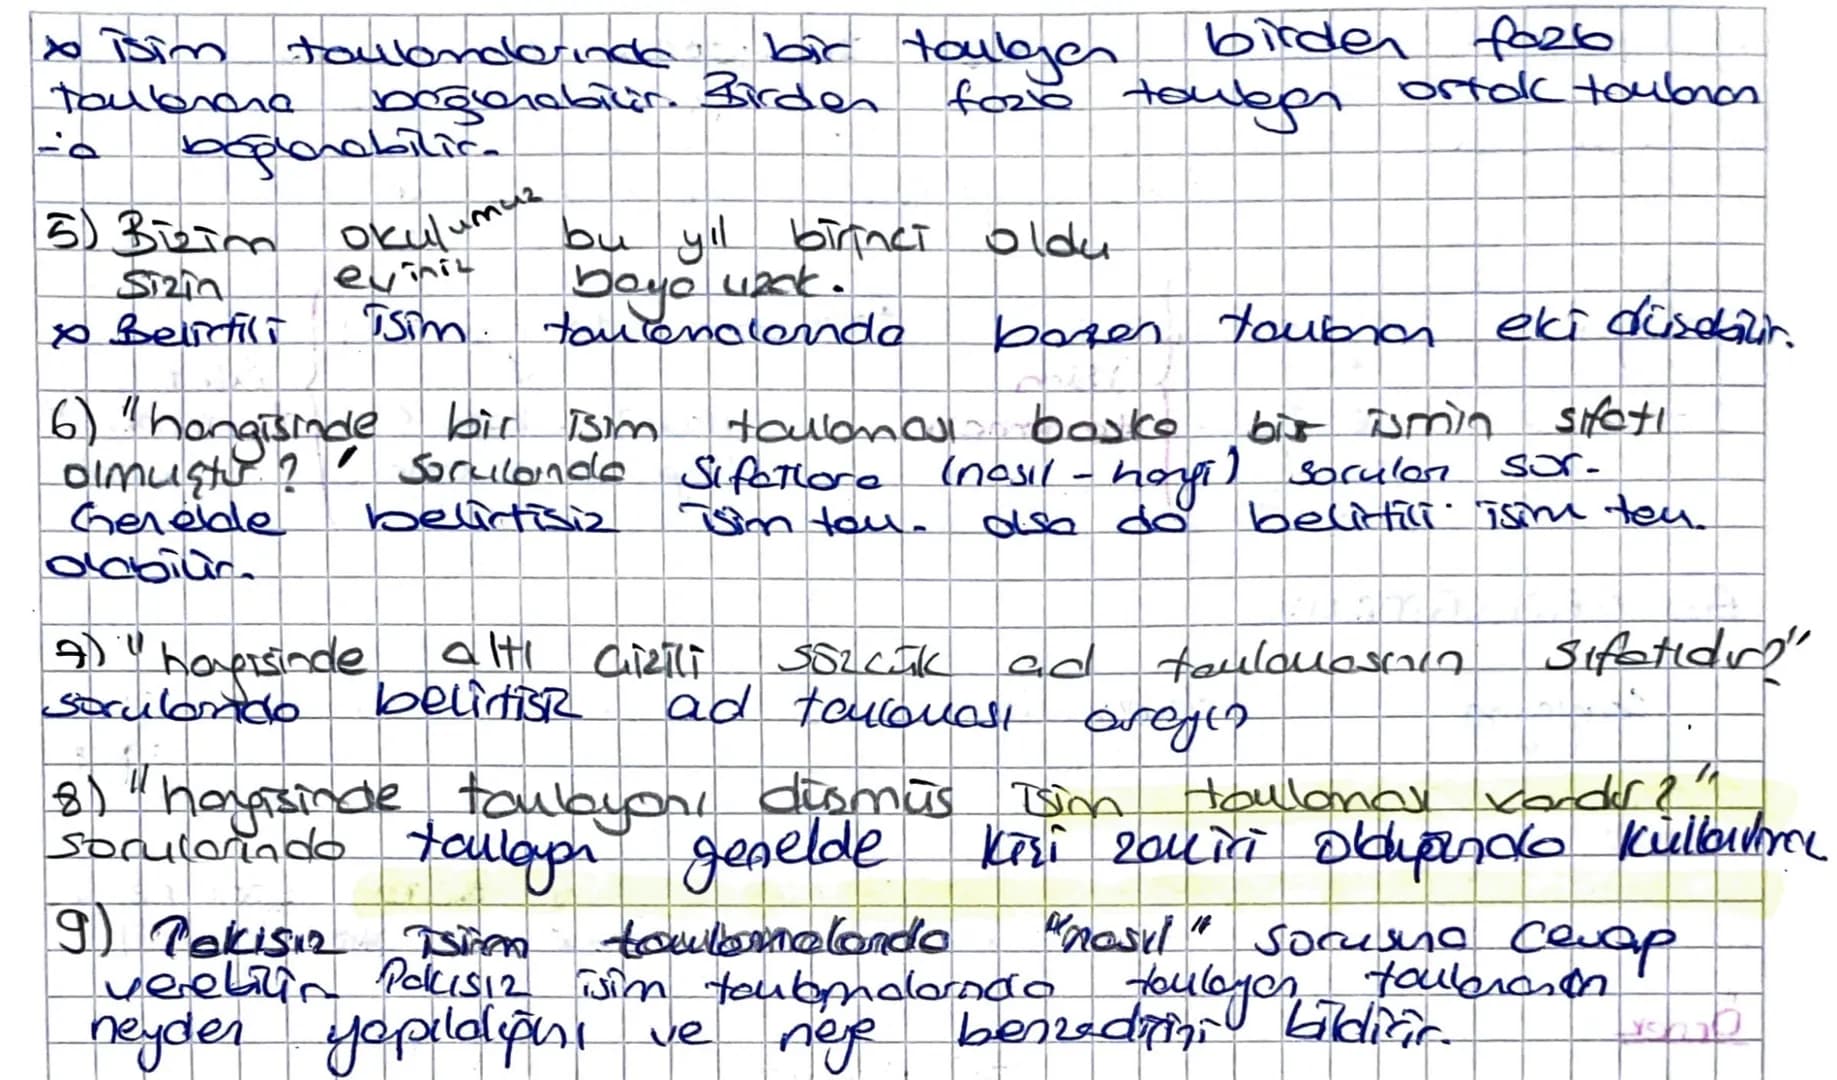 * İsim tamlamalarında bir tamlayan birden fazla
tamlanana bağlanabilir. Birden fazla tamlayan ortak tamlanan
-a bağlanabilir.
5) Bizim okulumuz bu yıl birinci oldu
Sizin eviniz baya uzak.
* Belirtili isim tamlamalarında bazen tamlanan eki düşebilir.
6) "hangisinde bir isim tamlaması başka bir ismin sıfatı
olmuştur?" sorularında sıfatlara (nasıl - hangi) soruları sor.
Genelde belirtisiz isim tam. olsa da belirtili isim tam.
olabilir.
7) "hangisinde altı çizili sözcük ad tamlamasının sıfatıdır?"
sorularında belirtisiz ad tamlaması arayın
8) "hangisinde tamlayanı düşmüş isim tamlaması vardır?"
sorularında tamlayan genelde kişi zamiri olduğunda kullanılır
9) Takısız isim tamlamalarında "nasıl" sorusuna cevap
verebilir. Takısız isim tamlamalarında tamlayan tamlananın
neyden yapıldığını ve neye benzediğini bildirir.